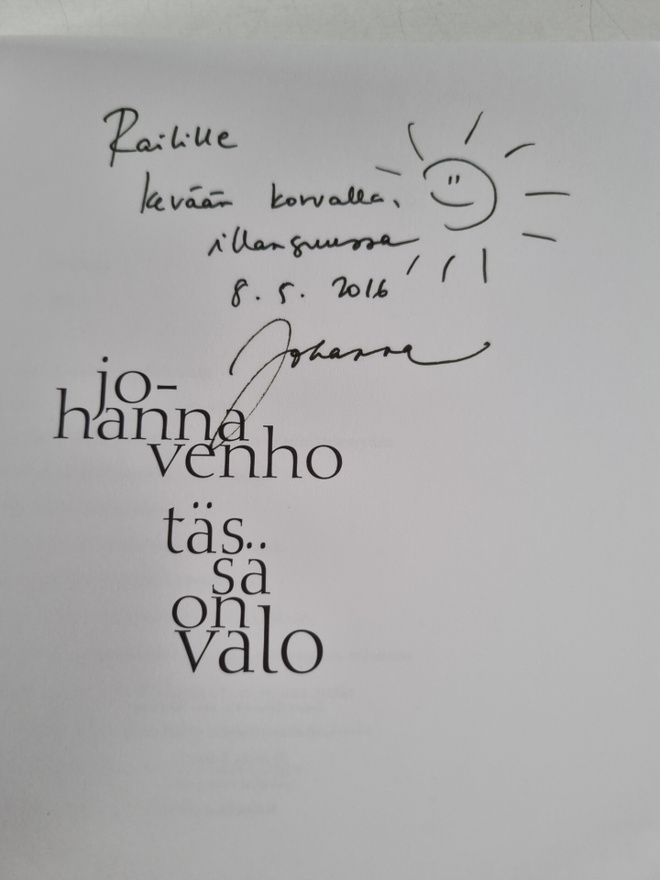 Railille
kevään korvalla,
illansuussa
8.5. 2016
Johanna
jo-
hanna
venho
täs..
sä
on
valo